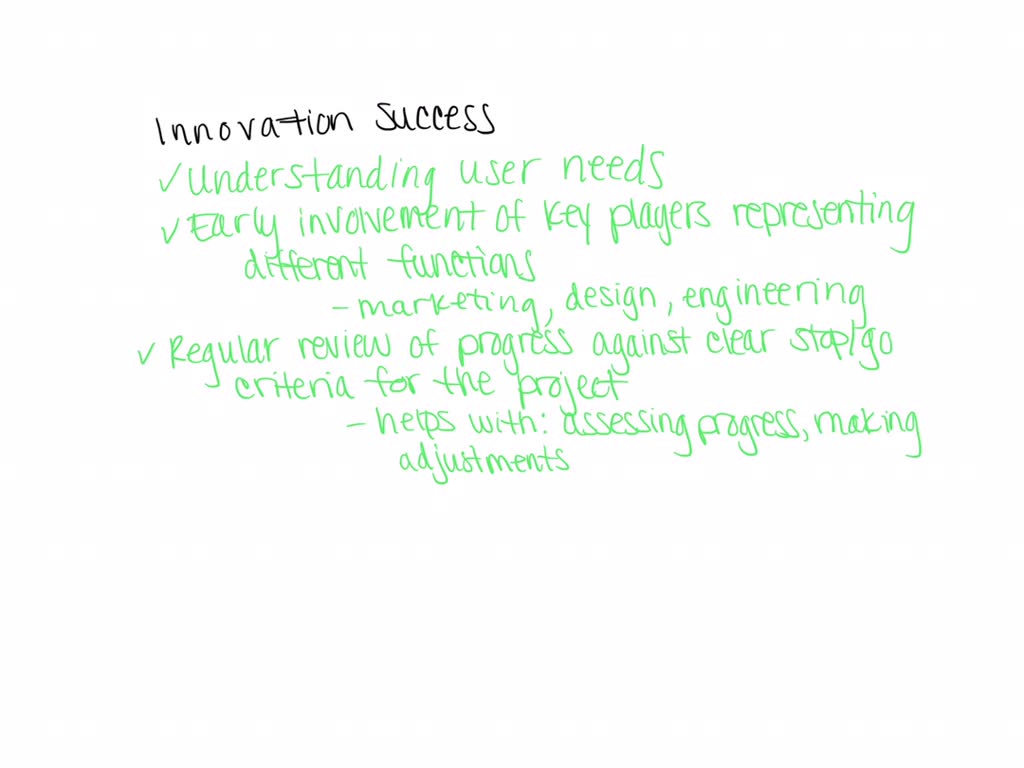 Innovation Success
✓ Understanding user needs
✓ Early involvement of key players representing
different functions
- marketing, design, engineering
✓ Regular review of progress against clear stop/go
criteria for the project
- helps with: assessing progress, making
adjustments